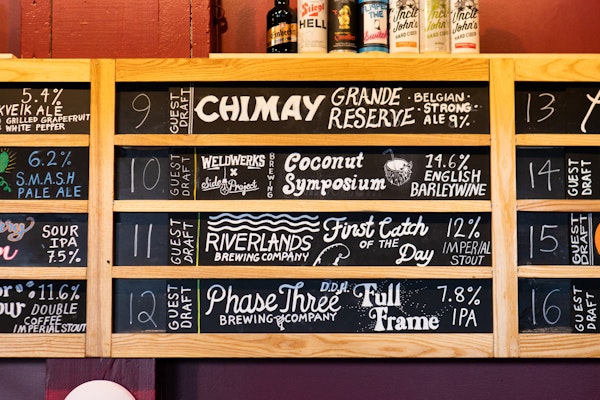 Stiegl
HELL
Uncle
John's
HARD CIDER
Uncle
John's
HARD CIDER
Uncle
John's
HARD CIDER
5.4%
KVEIK ALE
GRILLED GRAPEFRUIT
WHITE PEPPER
6.2%
S.M.A.S.H
PALE ALE
SOUR
IPA
7.5%
11.6%
DOUBLE
COFFEE
IMPERIAL STOUT
9
GUEST
DRAFT
CHIMAY
GRANDE
RESERVE
BELGIAN
STRONG
ALE 9%
10
GUEST
DRAFT
WELDWERKS
X
Side Project
BREWING
Coconut
Symposium
14.6%
ENGLISH
BARLEYWINE
11
GUEST
DRAFT
RIVERLANDS
BREWING COMPANY
First Catch
OF THE
Day
12%
IMPERIAL
STOUT
12
GUEST
DRAFT
Phase Three
BREWING COMPANY
D.D.H.
Full
Frame
7.8%
IPA
13
GUEST
DRAFT
14
GUEST
DRAFT
15
GUEST
DRAFT
16
GUEST
DRAFT